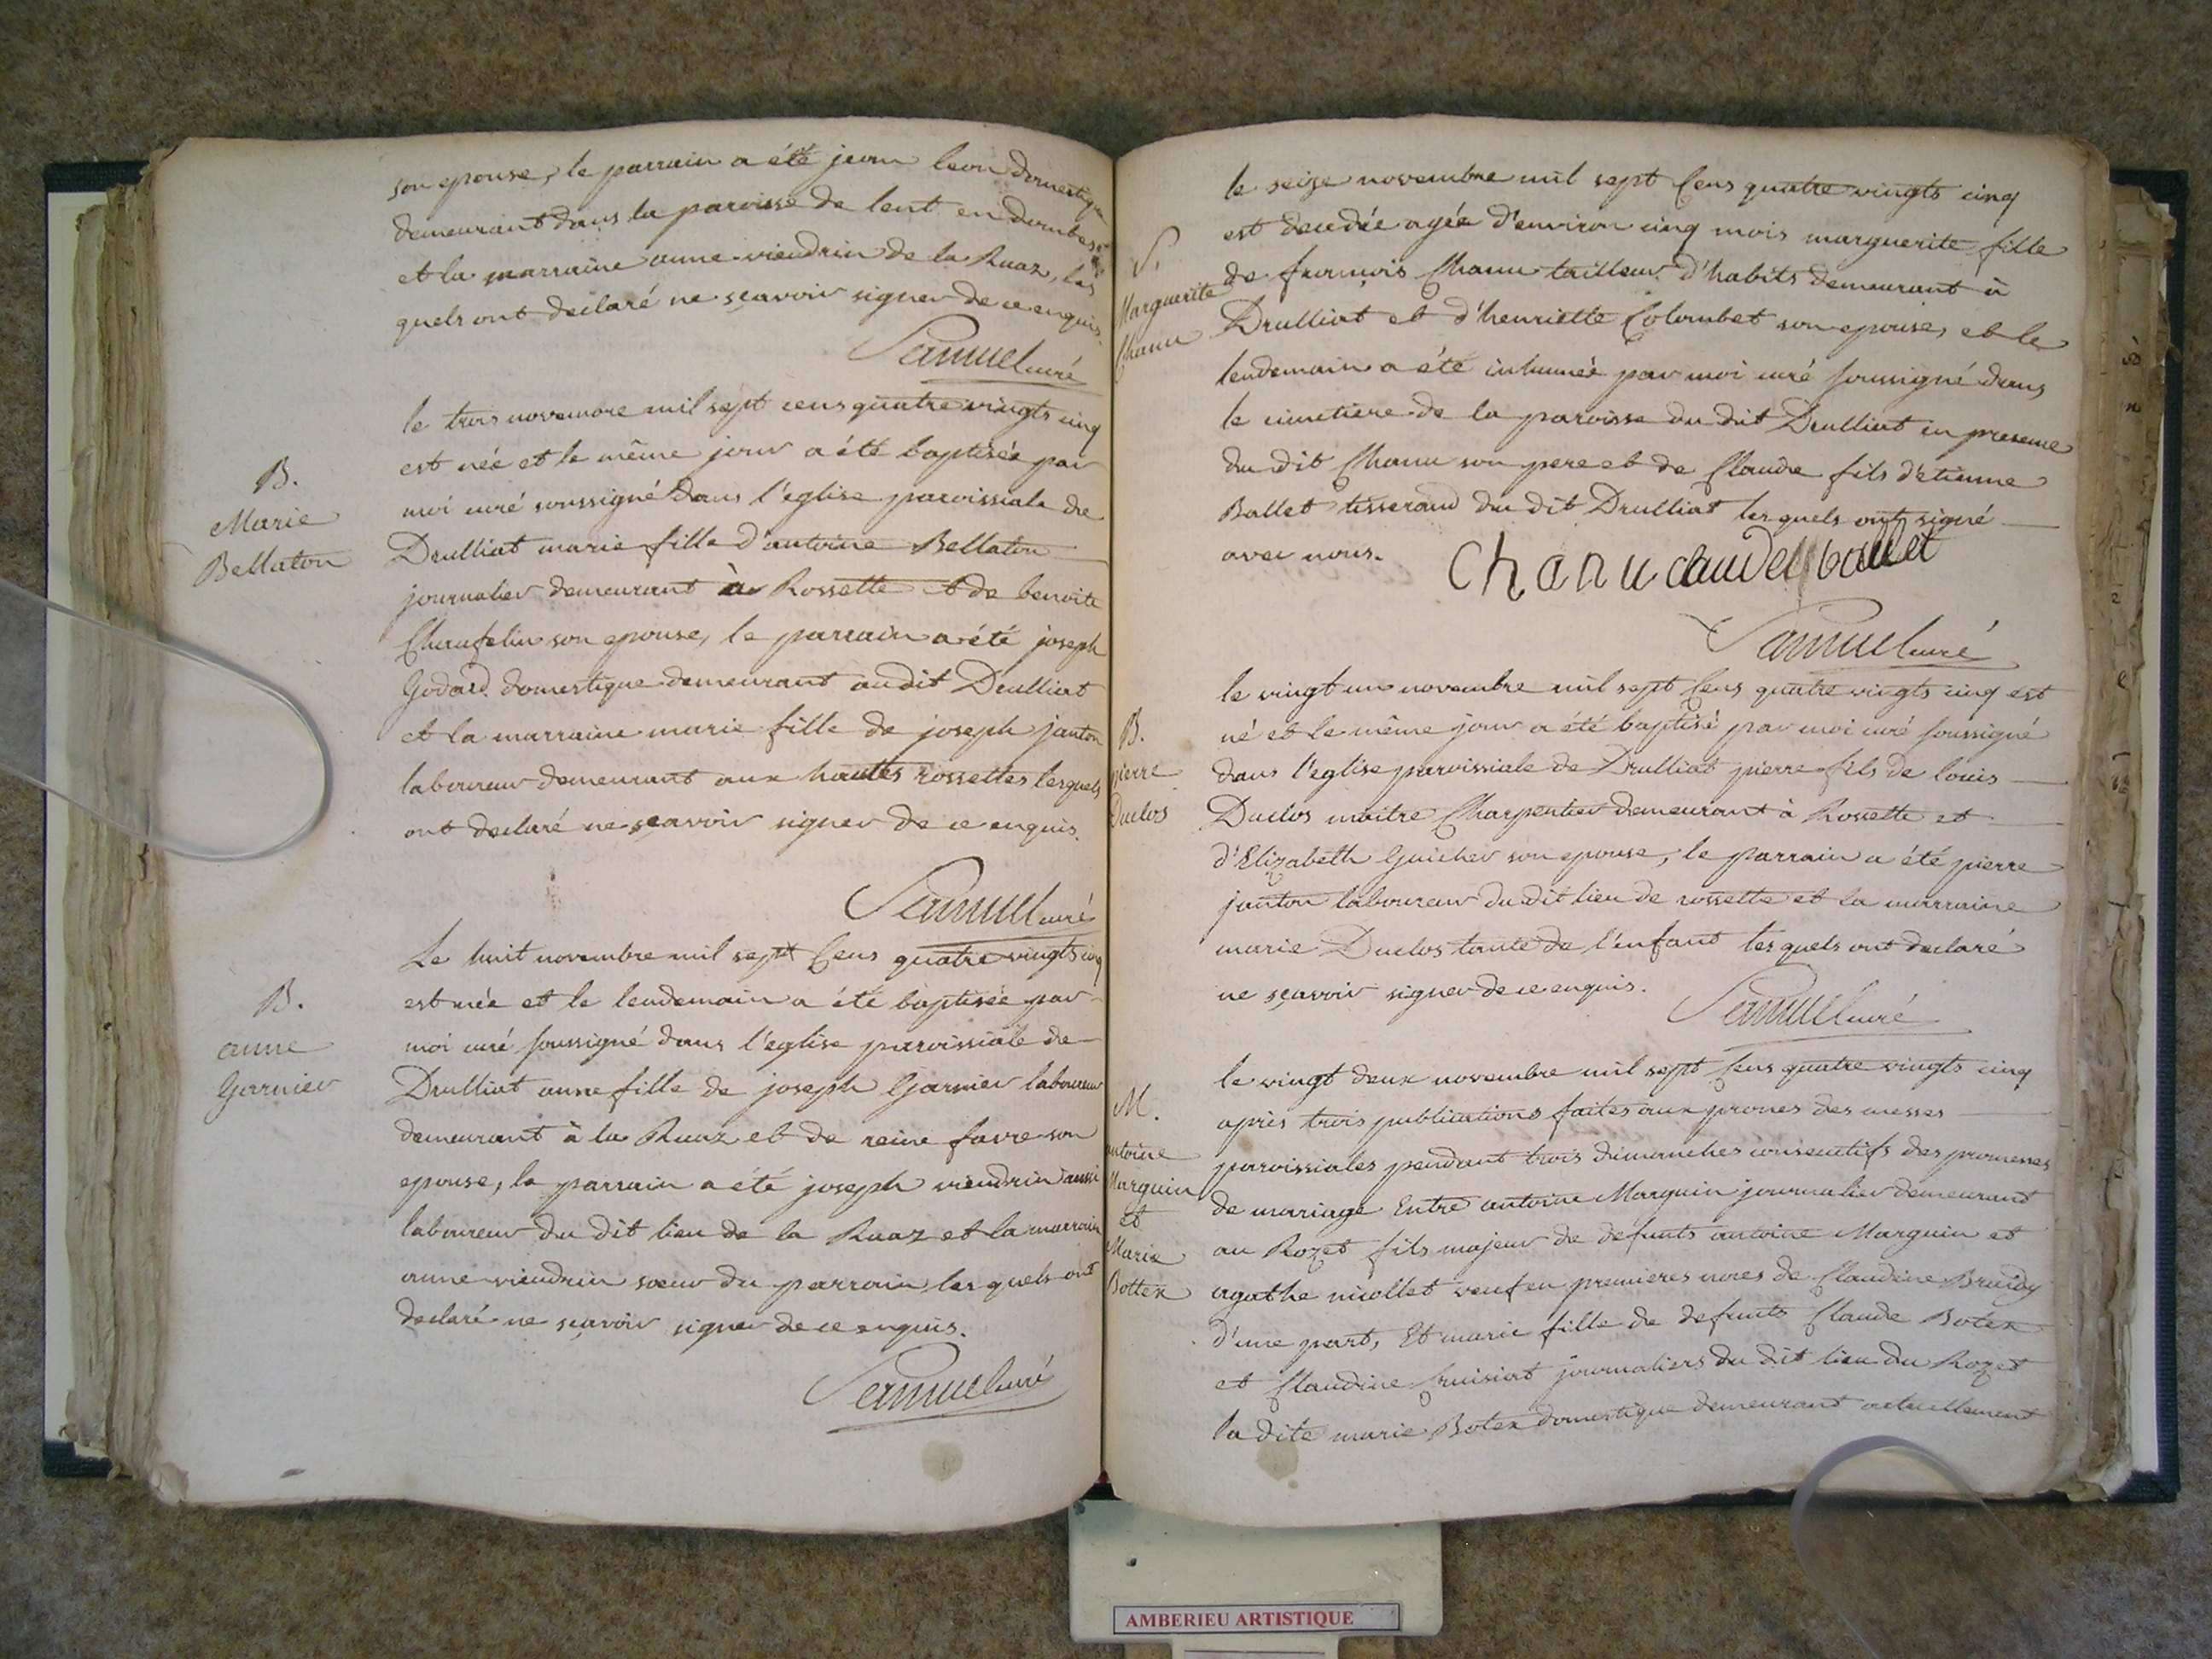 son epouse, le parrain a été jean leon domestique
demeurant dans la paroisse de lent en dombes
et la marraine anne viendrin de la Ruaz, les
quels ont declaré ne sçavoir signer de ce enquis.
Samuel curé
B.
Marie
Bellaton
le trois novembre mil sept cens quatre vingts cinq
est née et le même jour a été baptisée par
moi curé soussigné dans l'eglise paroissiale de
Drulliat marie fille d'antoine Bellaton
journalier demeurant à Rossette et de benoite
Chanfelin son epouse, le parrain a été joseph
Godard domestique demeurant audit Drulliat
et la marraine marie fille de joseph janton
laboureur demeurant aux hautes rossettes lesquels
ont declaré ne sçavoir signer de ce enquis.
Samuel curé
B.
anne
Garnier
Le huit novembre mil sept Cens quatre vingts cinq
est née et le lendemain a été baptisée par
moi curé soussigné dans l'eglise paroissiale de
Drulliat anne fille de joseph Garnier laboureur
demeurant à la Ruaz et de reine favre son
epouse, le parrain a été joseph viendrin aussi
laboureur du dit lieu de la Ruaz et la marraine
anne viendrin sœur du parrain, les quels ont
declaré ne sçavoir signer de ce enquis.
Samuel curé
S.
Marguerite
Chanu
le seize novembre mil sept Cens quatre vingts cinq
est decedée agée d'environ cinq mois marguerite fille
de françois Chanu tailleur d'habits demeurant à
Drulliat et d'henriette Colombet son epouse, et le
lendemain a été inhumée par moi curé soussigné dans
le cimetiere de la paroisse du dit Drulliat en presence
du dit Chanu son pere et de Claude fils d'etienne
Ballet tisserand du dit Drulliat les quels ont signé
avec nous.
Chanu claude ballet
Samuel curé
B.
pierre
Duclos
le vingt un novembre mil sept Cens quatre vingts cinq est
né et le même jour a été baptisé par moi curé soussigné
dans l'eglise paroissiale de Drulliat pierre fils de louis
Duclos maitre Charpentier demeurant à Rossette et
d'Elizabeth Guicher son epouse, le parrain a été pierre
janton laboureur du dit lieu de rossette et la marraine
marie Duclos tante de l'enfant les quels ont declaré
ne sçavoir signer de ce enquis.
Samuel curé
M.
antoine
Marguin
et
Marie
Bottex
le vingt deux novembre mil sept Cens quatre vingts cinq
après trois publications faites aux prones des messes
paroissiales pendant trois dimanches consecutifs des promesses
de mariage Entre antoine Marguin journalier demeurant
au Rozet fils majeur de defunts antoine Marguin et
agathe nicollet veuf en premieres noces de Claudine
d'une part, Et marie fille de defunts Claude Botex
et Claudine journaliers du dit lieu du Rozet
la dite marie Botex domestique demeurant actuellement
AMBERIEU ARTISTIQUE